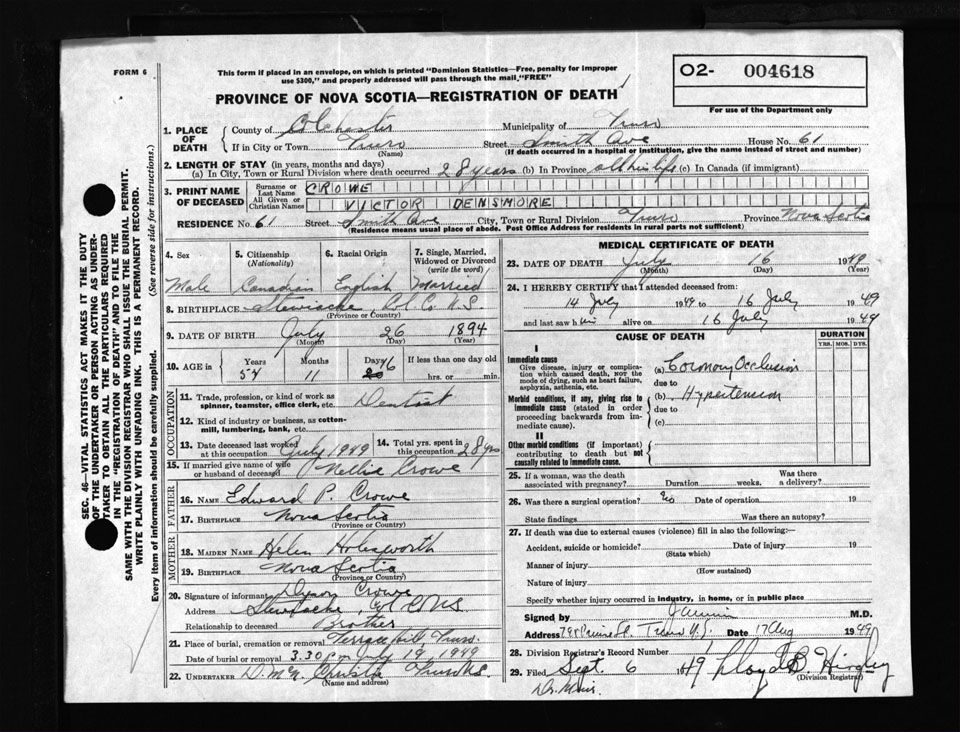 FORM 6
This form if placed in an envelope, on which is printed "Dominion Statistics—Free, penalty for improper
use $300," and properly addressed will pass through the mail, "FREE"
O2- 004618
For use of the Department only
PROVINCE OF NOVA SCOTIA—REGISTRATION OF DEATH
1. PLACE OF DEATH
County of Colchester Municipality of Truro
If in City or Town Truro Street Smith Ave House No. 61
(Name) (If death occurred in a hospital or institution, give the name instead of street and number)
2. LENGTH OF STAY (in years, months and days)
(a) In City, Town or Rural Division where death occurred 28 years (b) In Province all his life (c) In Canada (if immigrant)
3. PRINT NAME OF DECEASED
Surname or Last Name CROWE
All Given or Christian Names VICTOR DENSMORE
RESIDENCE No. 61 Street Smith Ave City, Town or Rural Division Truro Province Nova Scotia
(Residence means usual place of abode. Post Office Address for residents in rural parts not sufficient)
4. Sex
5. Citizenship (Nationality)
6. Racial Origin
7. Single, Married, Widowed or Divorced (write the word)
Male Canadian English Married
8. BIRTHPLACE Stewiacke Col. Co N.S
(Province or Country)
9. DATE OF BIRTH July 26 1894
(Month) (Day) (Year)
10. AGE in Years Months Days If less than one day old
54 11 20 hrs. or min.
OCCUPATION
11. Trade, profession, or kind of work as spinner, teamster, office clerk, etc. Dentist
12. Kind of industry or business, as cotton-mill, lumbering, bank, etc.
13. Date deceased last worked at this occupation July 1949
14. Total yrs. spent in this occupation 28 yrs
15. If married give name of wife or husband of deceased Nellie Crowe
FATHER
16. NAME Edward P. Crowe
17. BIRTHPLACE Nova Scotia
(Province or Country)
MOTHER
18. MAIDEN NAME Helen
19. BIRTHPLACE Nova Scotia
(Province or Country)
20. Signature of informant Crowe
Address Stewiacke, Col Co N.S
Relationship to deceased Brother
21. Place of burial, cremation or removal Truro.
Date of burial or removal 3.30 pm July 19, 1949
22. UNDERTAKER Truro N.S
(Name and address)
MEDICAL CERTIFICATE OF DEATH
23. DATE OF DEATH July 16 1949
(Month) (Day) (Year)
24. I HEREBY CERTIFY that I attended deceased from:
14 July 1949 to 16 July 1949
and last saw him alive on 16 July 1949
CAUSE OF DEATH
DURATION
YRS. MOS. DYS.
I
Immediate cause
Give disease, injury or complication which caused death, not the mode of dying, such as heart failure, asphyxia, asthenia, etc.
(a) Coronary Occlusion
due to
Morbid conditions, if any, giving rise to immediate cause (stated in order proceeding backwards from immediate cause).
(b) Hypertension
due to
(c)
II
Other morbid conditions (if important) contributing to death but not causally related to immediate cause.
25. If a woman, was the death associated with pregnancy? Duration weeks. Was there a delivery?
26. Was there a surgical operation? no Date of operation 19
State findings Was there an autopsy?
27. If death was due to external causes (violence) fill in also the following:—
Accident, suicide or homicide? Date of injury 19
(State which)
Manner of injury
(How sustained)
Nature of injury
Specify whether injury occurred in industry, in home, or in public place
Signed by M.D.
Address Date 17 Aug 1949
28. Division Registrar's Record Number
29. Filed Sept. 6 1949 Lloyd B.
(Division Registrar)
SEC. 46—VITAL STATISTICS ACT MAKES IT THE DUTY
OF THE UNDERTAKER OR PERSON ACTING AS UNDER-
TAKER TO OBTAIN ALL THE PARTICULARS REQUIRED
IN THE "REGISTRATION OF DEATH" AND TO FILE THE
SAME WITH THE DIVISION REGISTRAR WHO SHALL ISSUE THE BURIAL PERMIT.
WRITE PLAINLY WITH UNFADING INK. THIS IS A PERMANENT RECORD.
Every item of information should be carefully supplied. (See reverse side for instructions.)